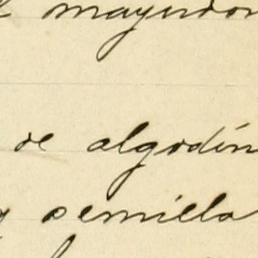 mayordom
de algodón
y semilla